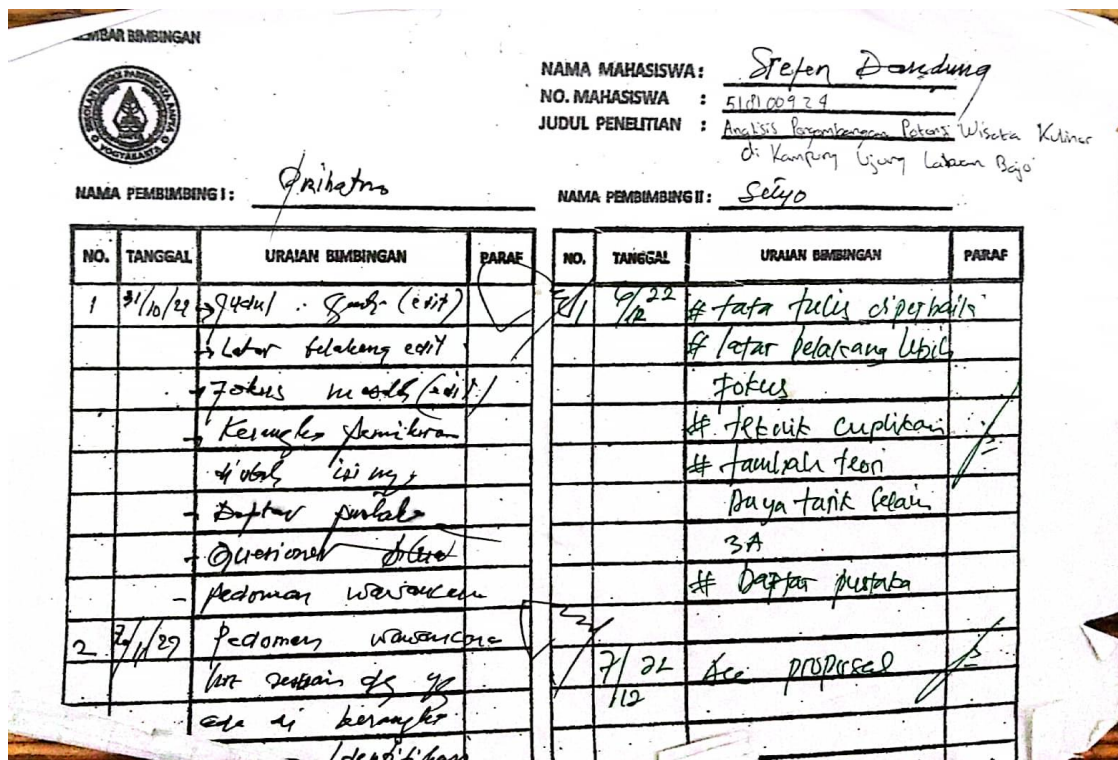 LEMBAR BIMBINGAN
SEKOLAH TINGGI PARIWISATA AMPTA
YOGYAKARTA
NAMA MAHASISWA: Stefen
NO. MAHASISWA : 518100924
JUDUL PENELITIAN : Analisis Pengembangan Potensi Wisata Kuliner
di Kampung Ujung Labuan Bajo
NAMA PEMBIMBING I: Prihatno
NAMA PEMBIMBING II: Setyo
NO. TANGGAL URAIAN BIMBINGAN PARAF
1 31/10/22 → Judul : (edit)
→ Latar belakang edit
→ Fokus masalah (edit)
- Kerangka pemikiran
diubah isi nya
- Daftar pustaka
- Quesioner
- pedoman wawancara
2 Pedoman wawancara
sesuai dg yg
ada di kerangka
Identifikasi
NO. TANGGAL URAIAN BIMBINGAN PARAF
1 6/12 22 # tata tulis diperbaiki
# latar belakang lebih
fokus
# teknik cuplikan
# tambah teori
Daya tarik selain
3A
# Daftar pustaka
2 7/12 22 Acc proposal